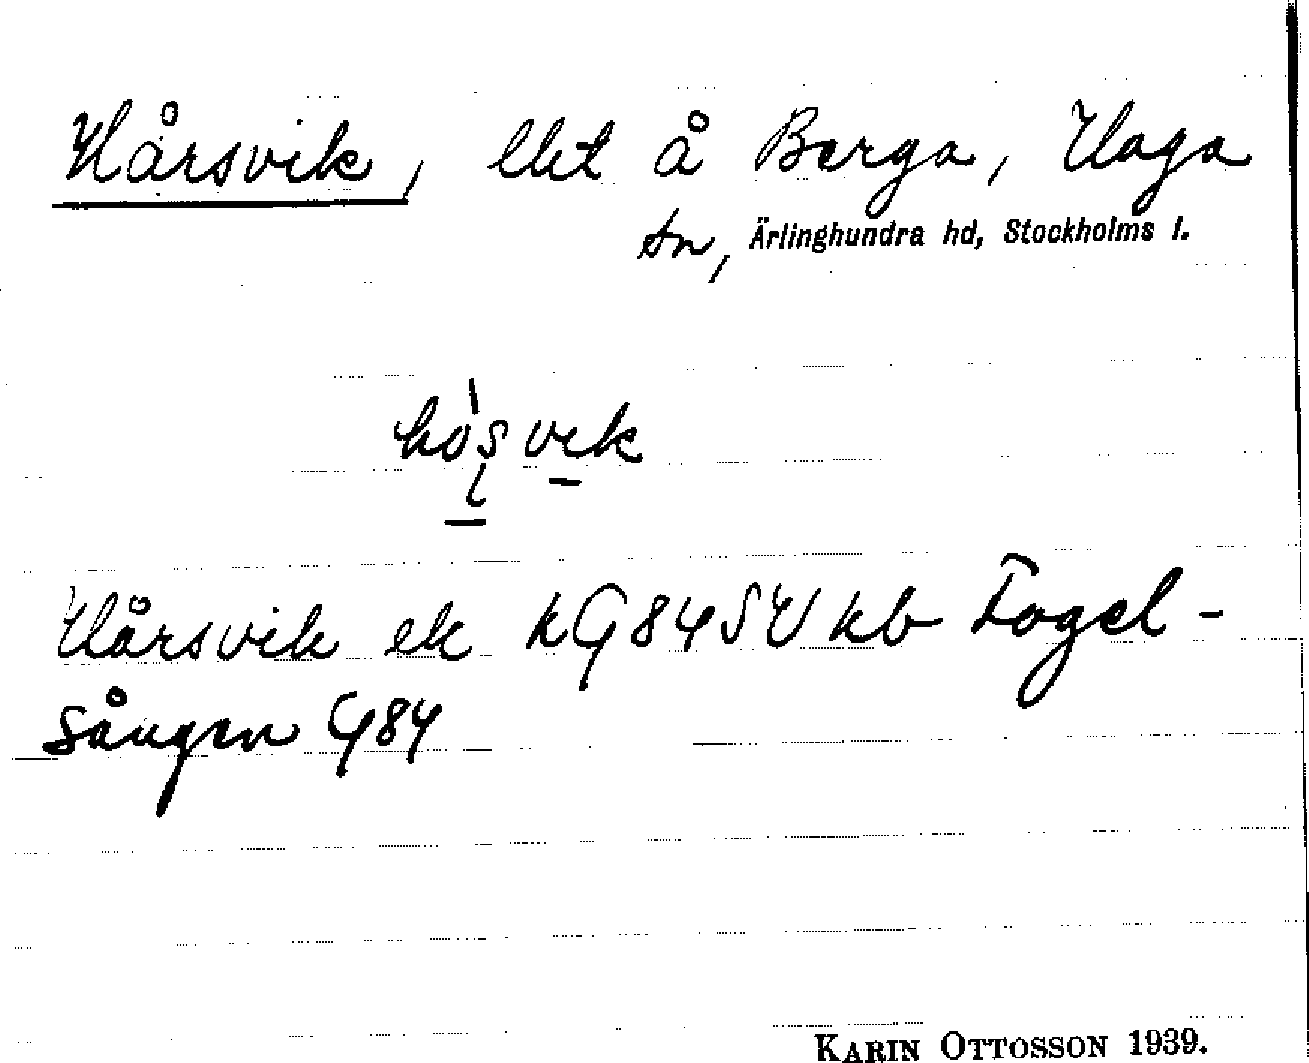 Hårsvik, lht å Berga, Haga
sn, Ärlinghundra hd, Stockholms l.
Hårsvik ek kG84SV kb Fogel-
sången G84
KARIN OTTOSSON 1939.